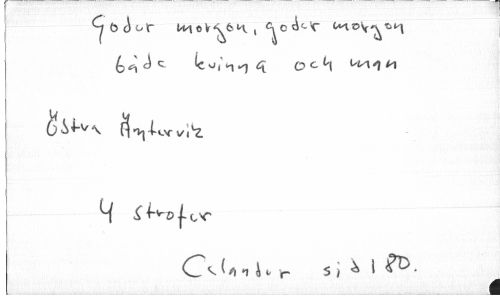 Goder morgon, goder morgon
både kvinna och man
Östra Ämtervik
4 strofer
Celander sid 180.